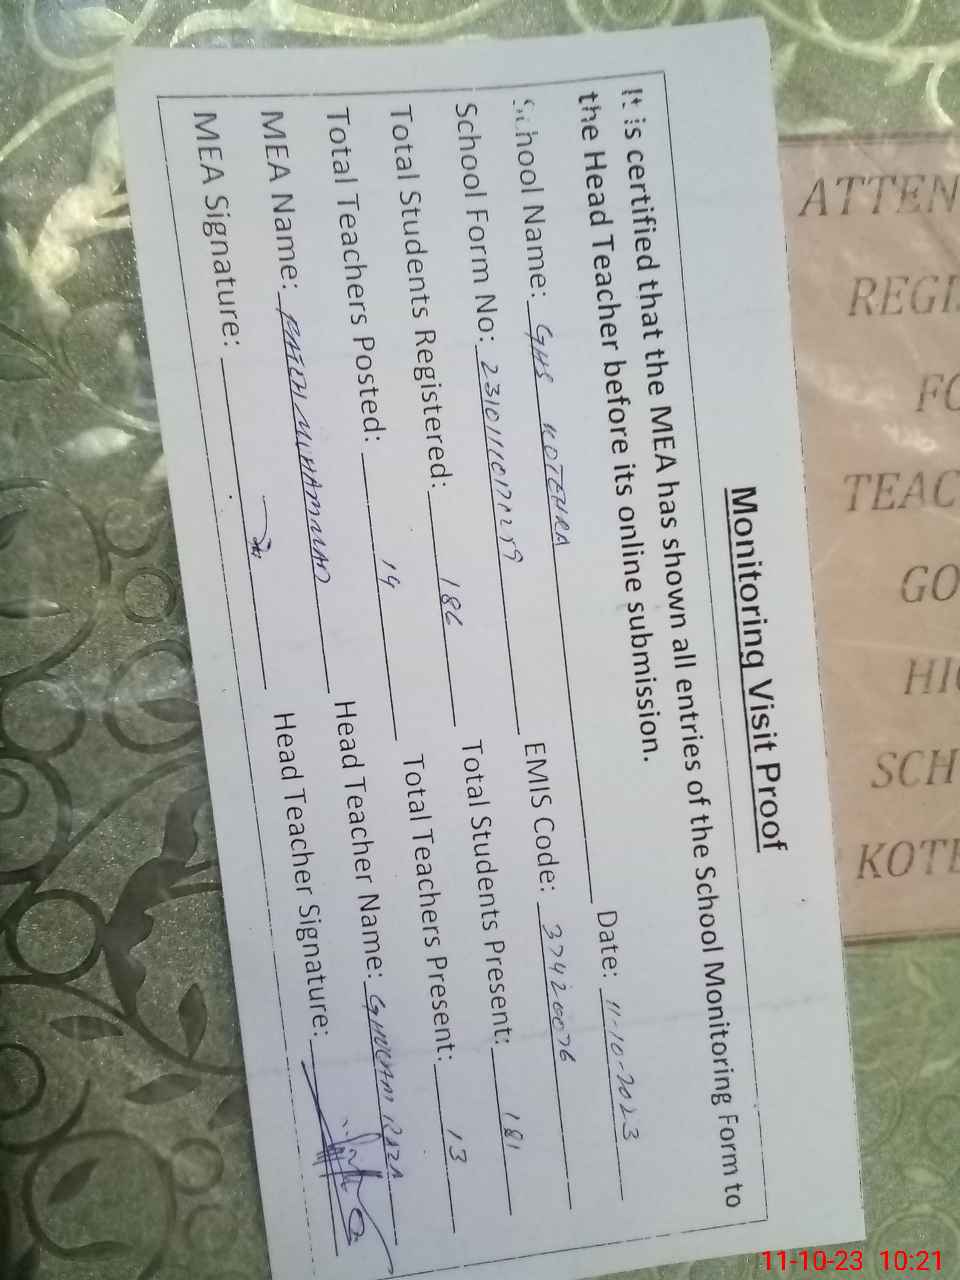 Monitoring Visit Proof
It is certified that the MEA has shown all entries of the School Monitoring Form to
the Head Teacher before its online submission.
School Name: GHS KOTEHRA Date: 11-10-2023
School Form No: EMIS Code: 37420076
Total Students Registered: 186 Total Students Present: 181
Total Teachers Posted: 14 Total Teachers Present: 13
MEA Name: FATEH MUHAMMAD Head Teacher Name: GHULAM RAZA
MEA Signature: Head Teacher Signature:
ATTEN
REGI
FO
TEAC
GO
HIG
SCH
KOTE
11-10-23 10:21